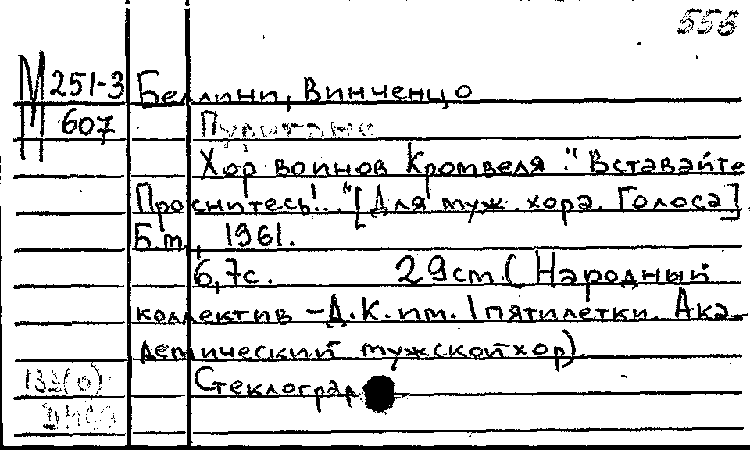 556
М 251-3 Беллини, Винченцо
607 Пуритане
Хор воинов Кромвеля. "Вставайте
Проснитесь!.." [Для муж. хора. Голоса]
Б.м., 1961.
6,7с. 29см. (Народный
коллектив - Д.К. им. I пятилетки. Ака-
демический мужской хор)
133(0) Стеклогр